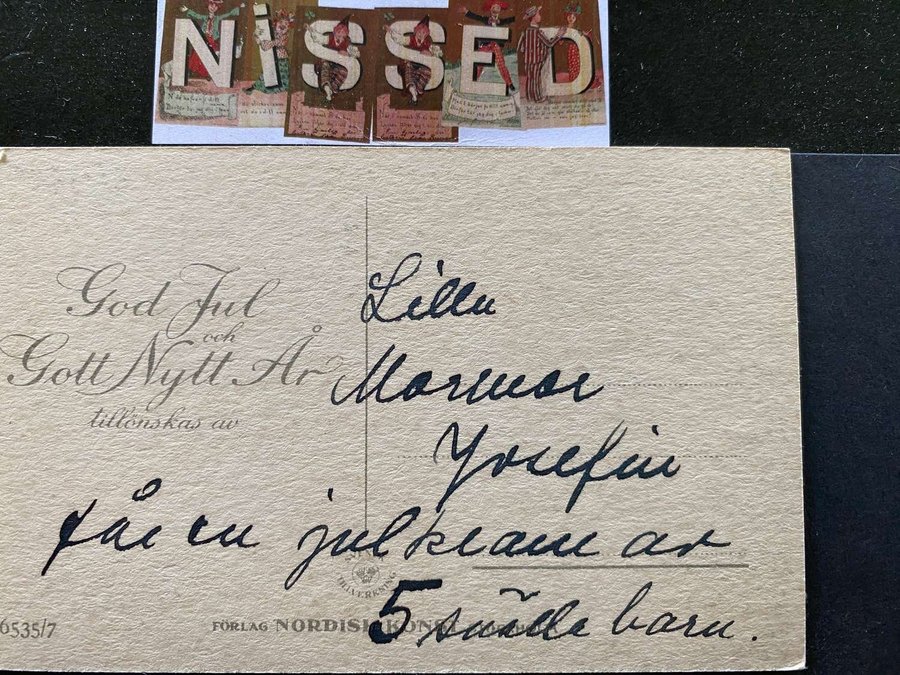 NiSSED
God Jul
och
Gott Nytt År
tillönskas av
Lilla
Mormor
Josefin
får en julkram av
5 snälla barn.
6535/7
FÖRLAG NORDISK KONST